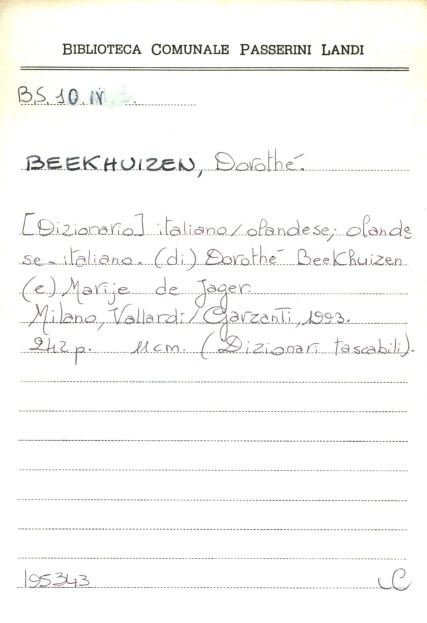 BIBLIOTECA COMUNALE PASSERINI LANDI
B.S. 10. IV
BEEKHUIZEN, Dorothé.
[Dizionario] italiano/olandese; olande
se-italiano. (di) Dorothé Beekhuizen
(e) Marije de Jager.
Milano, Vallardi/Garzanti, 1993.
242 p. 11 cm. (Dizionari tascabili).
195343